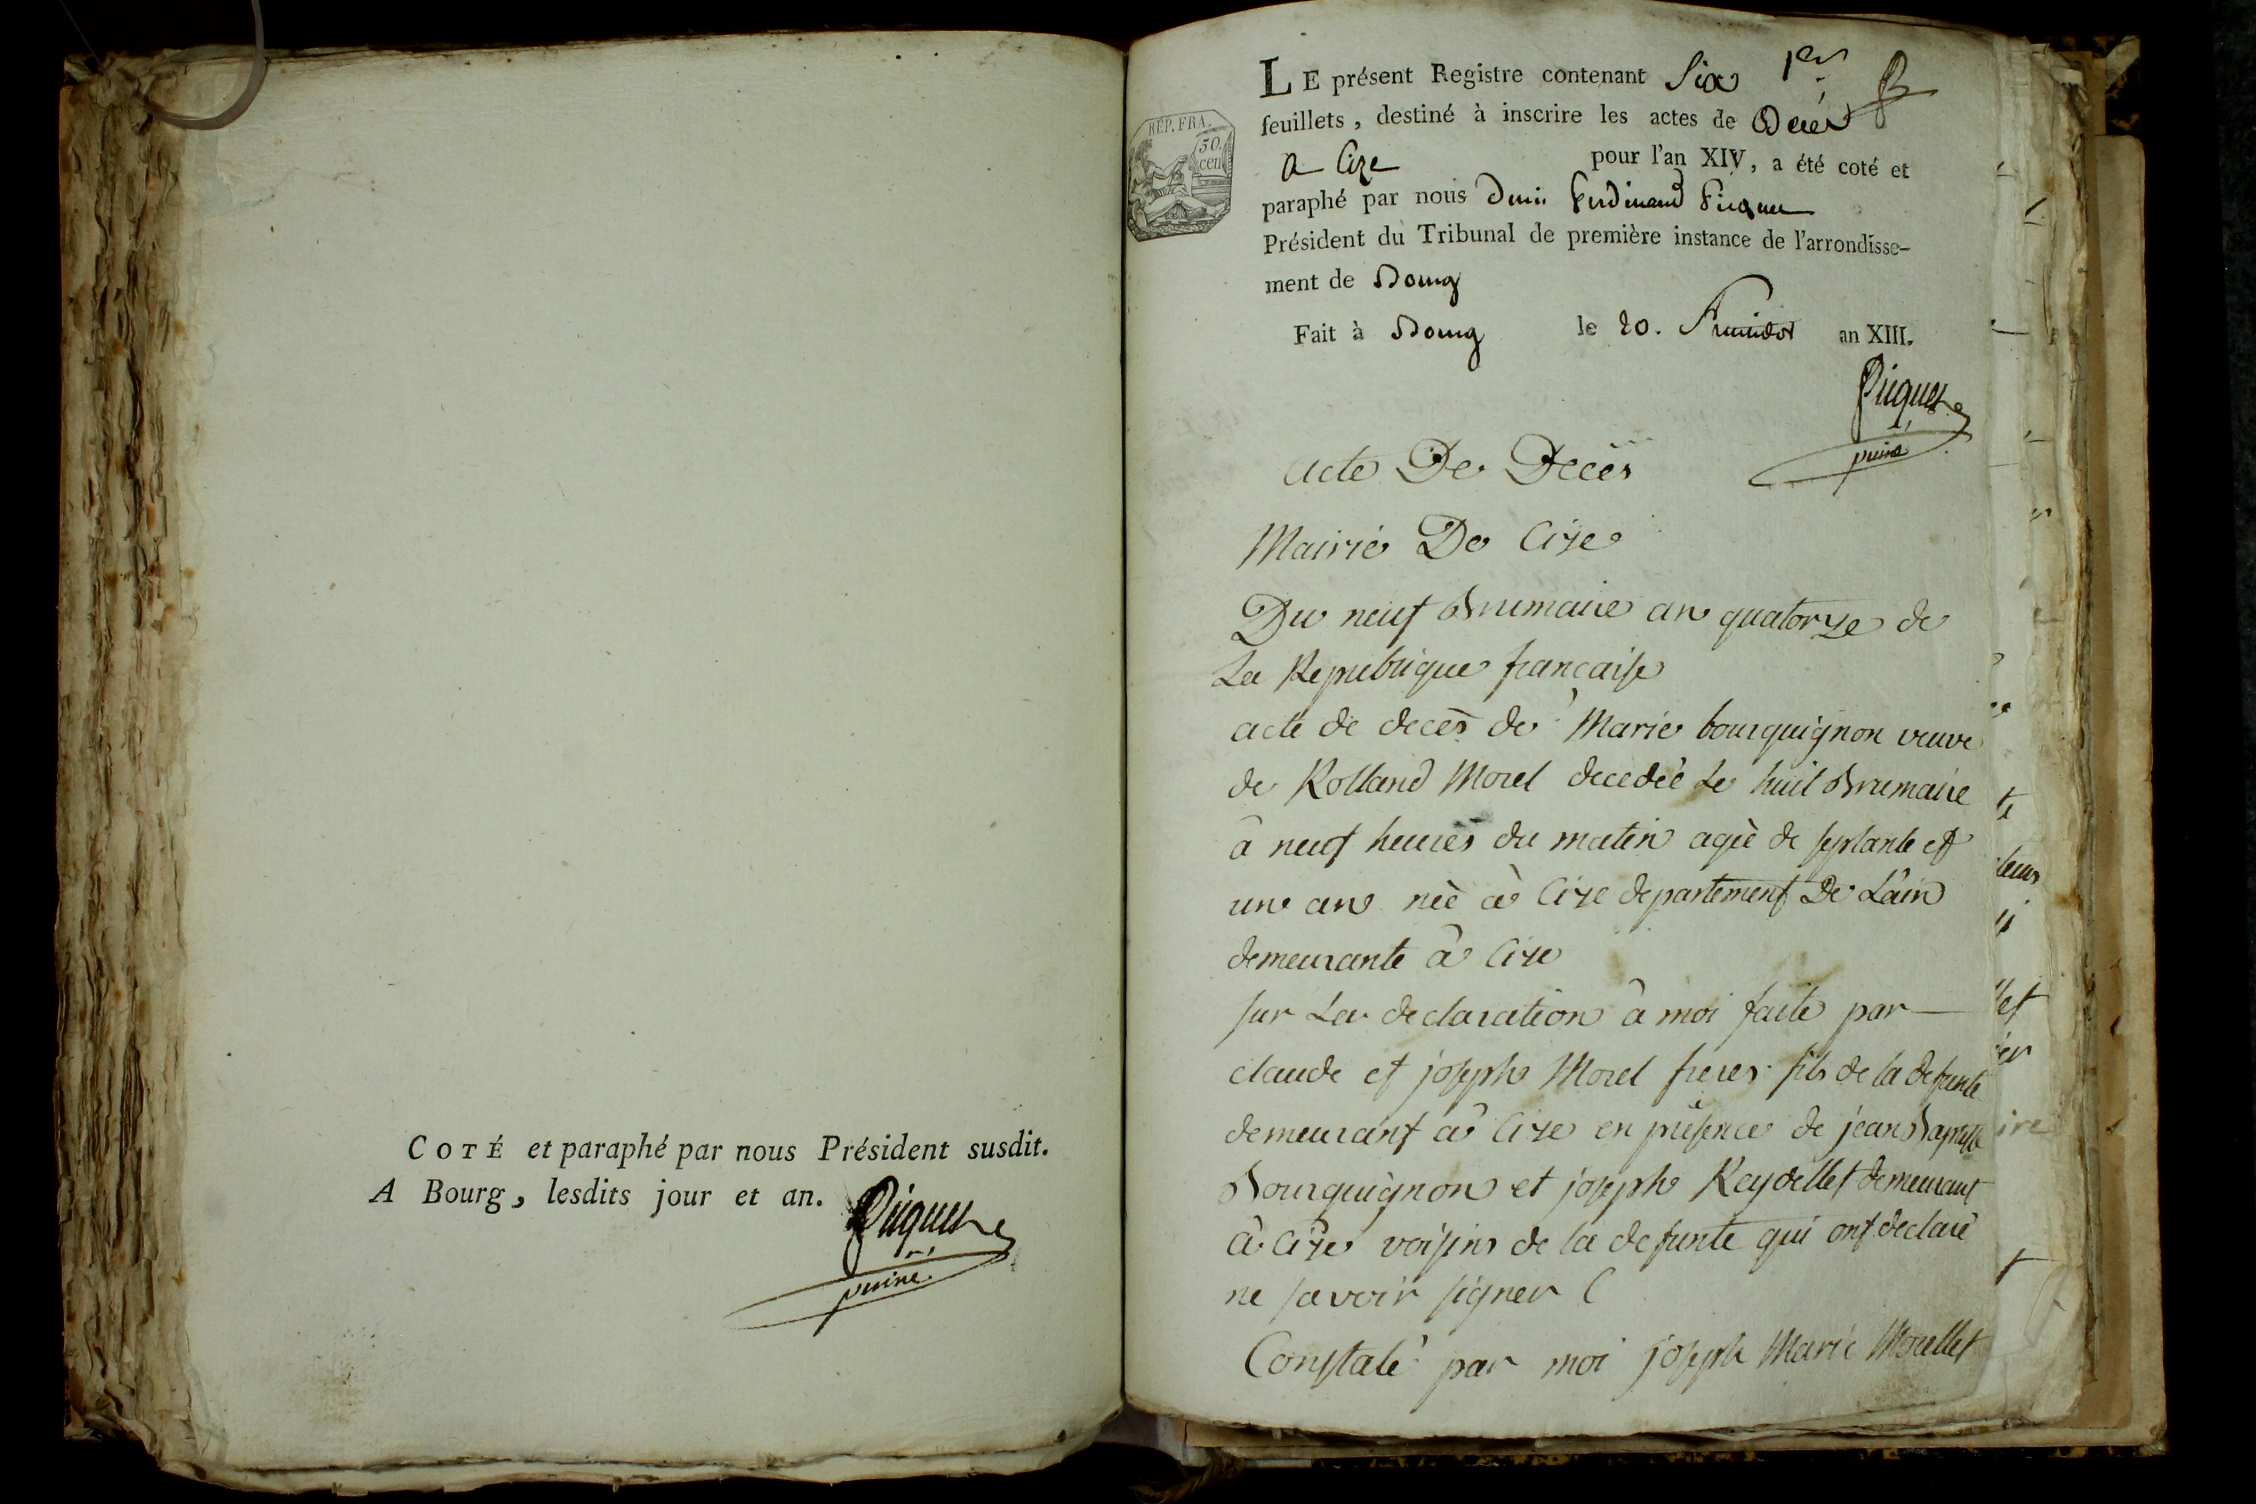 COTÉ et paraphé par nous Président susdit.
A Bourg, lesdits jour et an.
Picquet
1er
LE présent Registre contenant Six
feuillets, destiné à inscrire les actes de Décès
REP. FRA.
50.
cen
a Cize pour l'an XIV, a été coté et
paraphé par nous Denis Ferdinand Picquet
Président du Tribunal de première instance de l'arrondisse-
ment de Bourg
Fait à Bourg le 20. Fructidor an XIII.
Picquet
acte De Decès
Mairie De Cize
Du neuf Brumaire an quatorze de
La Republique francaise
acte de decès de Marie bourguignon veuve
de Rolland Morel decedée Le huit Brumaire
à neuf heures du matin agée de septante et
un an née à Cize departement De L'ain
demeurante à Cize
sur La declaration à moi faite par
claude et joseph Morel freres fils de la defunte
demeurant à Cize en présence de jean Baptiste
Bourguignon et joseph Reydellet demeurant
à Cize voisins de la defunte qui ont declaré
ne savoir signer
Constaté par moi joseph Marie Morellet